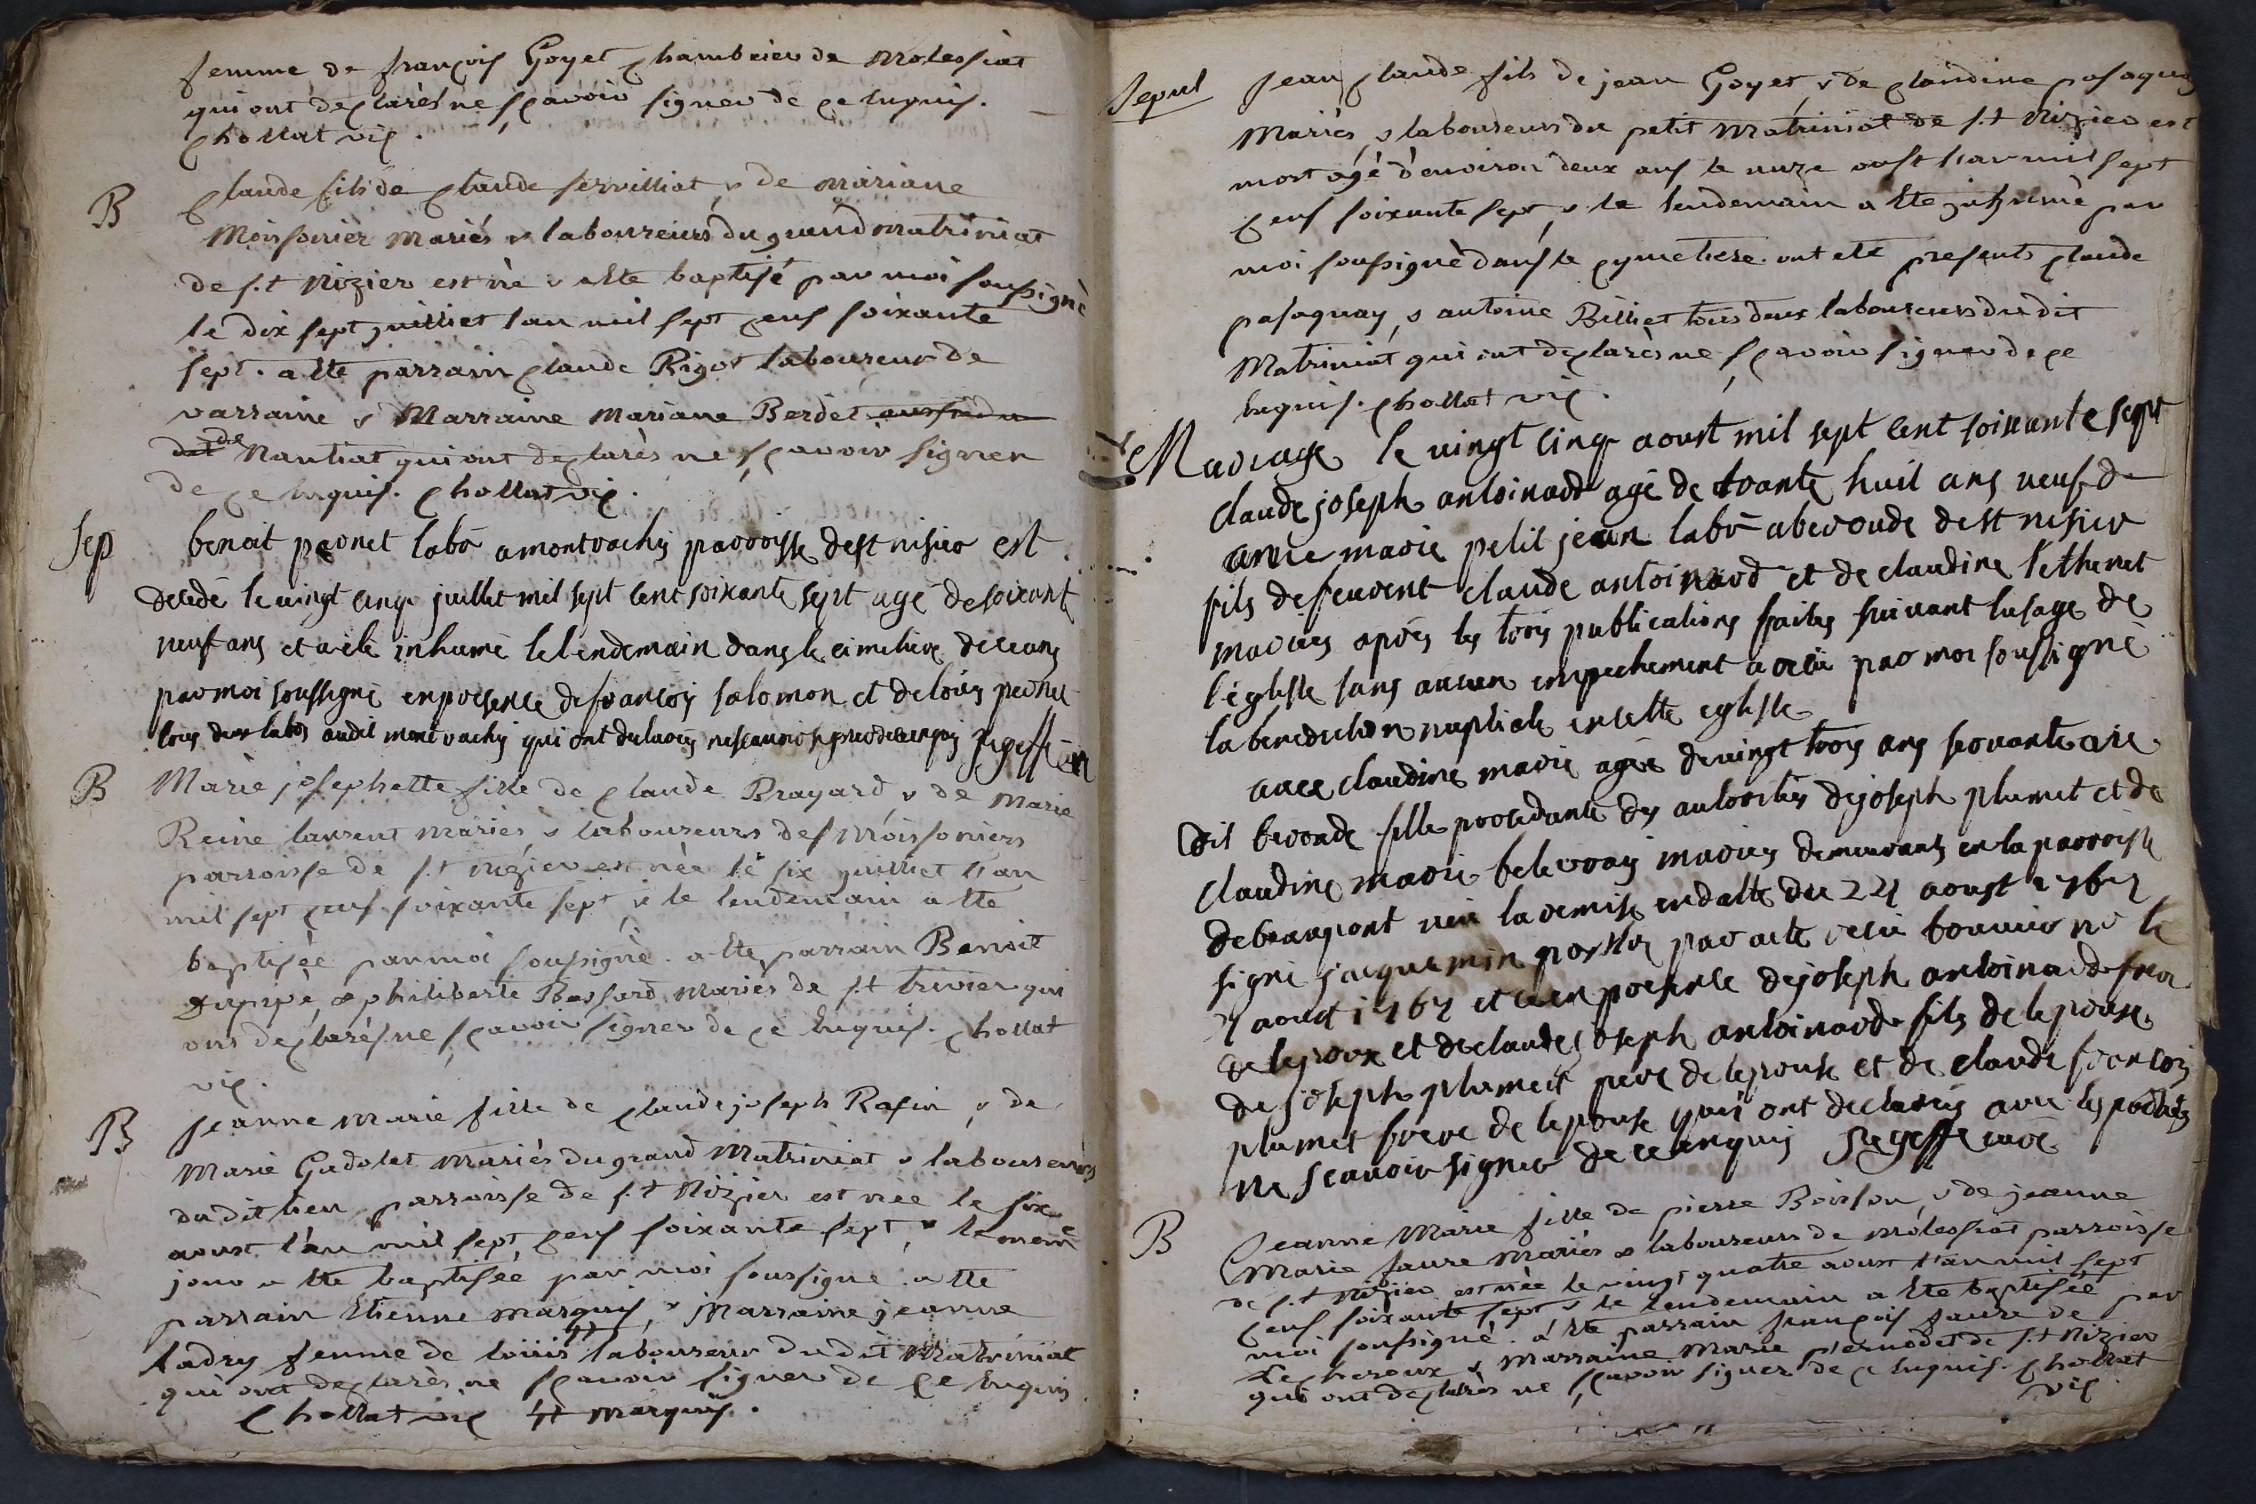 femme de françois Goyet chambrier de molessiat
qui ont declarés ne scavoir signer de ce enquis.
chollat vic.
B
claude fils de claude servilliat & de mariane
Moissonier mariés & laboureurs du grand matriniat
de s.t Nizier est né & a ete baptisé par moi soussigné
le dix sept juilliet l'an mil sept cens soixante
sept. a ete parrain claude Rigot laboureur de
varraine & Marraine Mariane Berdet
de Nantiat qui ont declarés ne scavoir signer
de ce enquis. chollat vic.
Sep
benoit peonet labr a montvachy parroisse de st nisier est
decedé le vingt cinq juillet mil sept cent soixante sept agé de soixante
neuf ans et a été inhumé le lendemain dans le cimetiere de ceans
par moi soussigné en presence de francoy salomon et de louis peonet
tous deux labrs audit montvachy qui ont declarés ne scavoir signer de ce enquis
B
Marie josephette fille de claude Brayard & de Marie
Reine laurent mariés & laboureurs des moissoniers
parroisse de s.t nizier est née le six juilliet l'an
mil sept cens soixante sept, & le lendemain a ete
baptisée par moi soussigné. a ete parrain Benoit
& philiberte Bassard mariés de s.t trivier qui
ont declarés ne scavoir signer de ce enquis. chollat
vic.
B
jeanne marie fille de claude joseph Rafin & de
Marie Gadolet mariés du grand Matriniat & laboureurs
du dit lieu parroisse de s.t Nizier est née le six
aoust l'an mil sept cens soixante sept, & le meme
jour a ete baptisée par moi soussigné a ete
parrain Etienne marquis, & Marraine jeanne
ladry femme de loüis laboureur du dit Matriniat
qui ont declarés ne scavoir signer de ce enquis
chollat vic marquis.
Sepul
Jean claude fils de jean Goyet & de claudine pasaquay
Mariés & laboureurs du petit Matriniat de s.t Nizier est
mort agé d'environ deux ans le onze aoust l'an mil sept
cens soixante sept, & le lendemain a ete inhumé par
moi soussigné dans le cymetiere. ont eté presents claude
pasaquay, & antoine Billiet tous deux laboureurs du dit
Matriniat qui ont declarés ne scavoir signer de ce
enquis. chollat vic.
Mariage le vingt cinq aoust mil sept cent soixante sept
claude joseph antoinard agé de trante huit ans veuf de
anne marie petit jean labr a bevonde de st nisier
fils de feuvent claude antoinard et de claudine lethenet
mariés apres les trois publications faites suivant lusage de
l'eglise sans aucun empechement a receu par moi soussigné
la benediction nuptiale en cette eglise
avec claudine marie agée de vingt trois ans servante audit
bevonde fille procedante des autorités de joseph plumet et de
claudine marie mariés demeurants en la parroisse
de beaupont veu la remise en datte du 24 aoust 1767
signé jacquemin par acte receu no le
aoust 1767 et ce en presence de joseph antoinard frere
de lepoux et de claude joseph antoinard fils de lepoux
de joseph plumet pere de lepouse et de claude francois
plumet frere de lepouse qui ont declarés avec les
ne scavoir signer de ce enquis
B
Jeanne Marie fille de pierre Boisson & de jeanne
Marie faure mariés & laboureurs de molessiat parroisse
de s.t Nizier est née le vingt quatre aoust l'an mil sept
cens soixante sept & le lendemain a ete baptisée par
moi soussigné. a ete parrain françois faure de
Lechereux & Marraine Marie pernodet de s.t Nizier
qui ont declarés ne scavoir signer de ce enquis. chollat
vic